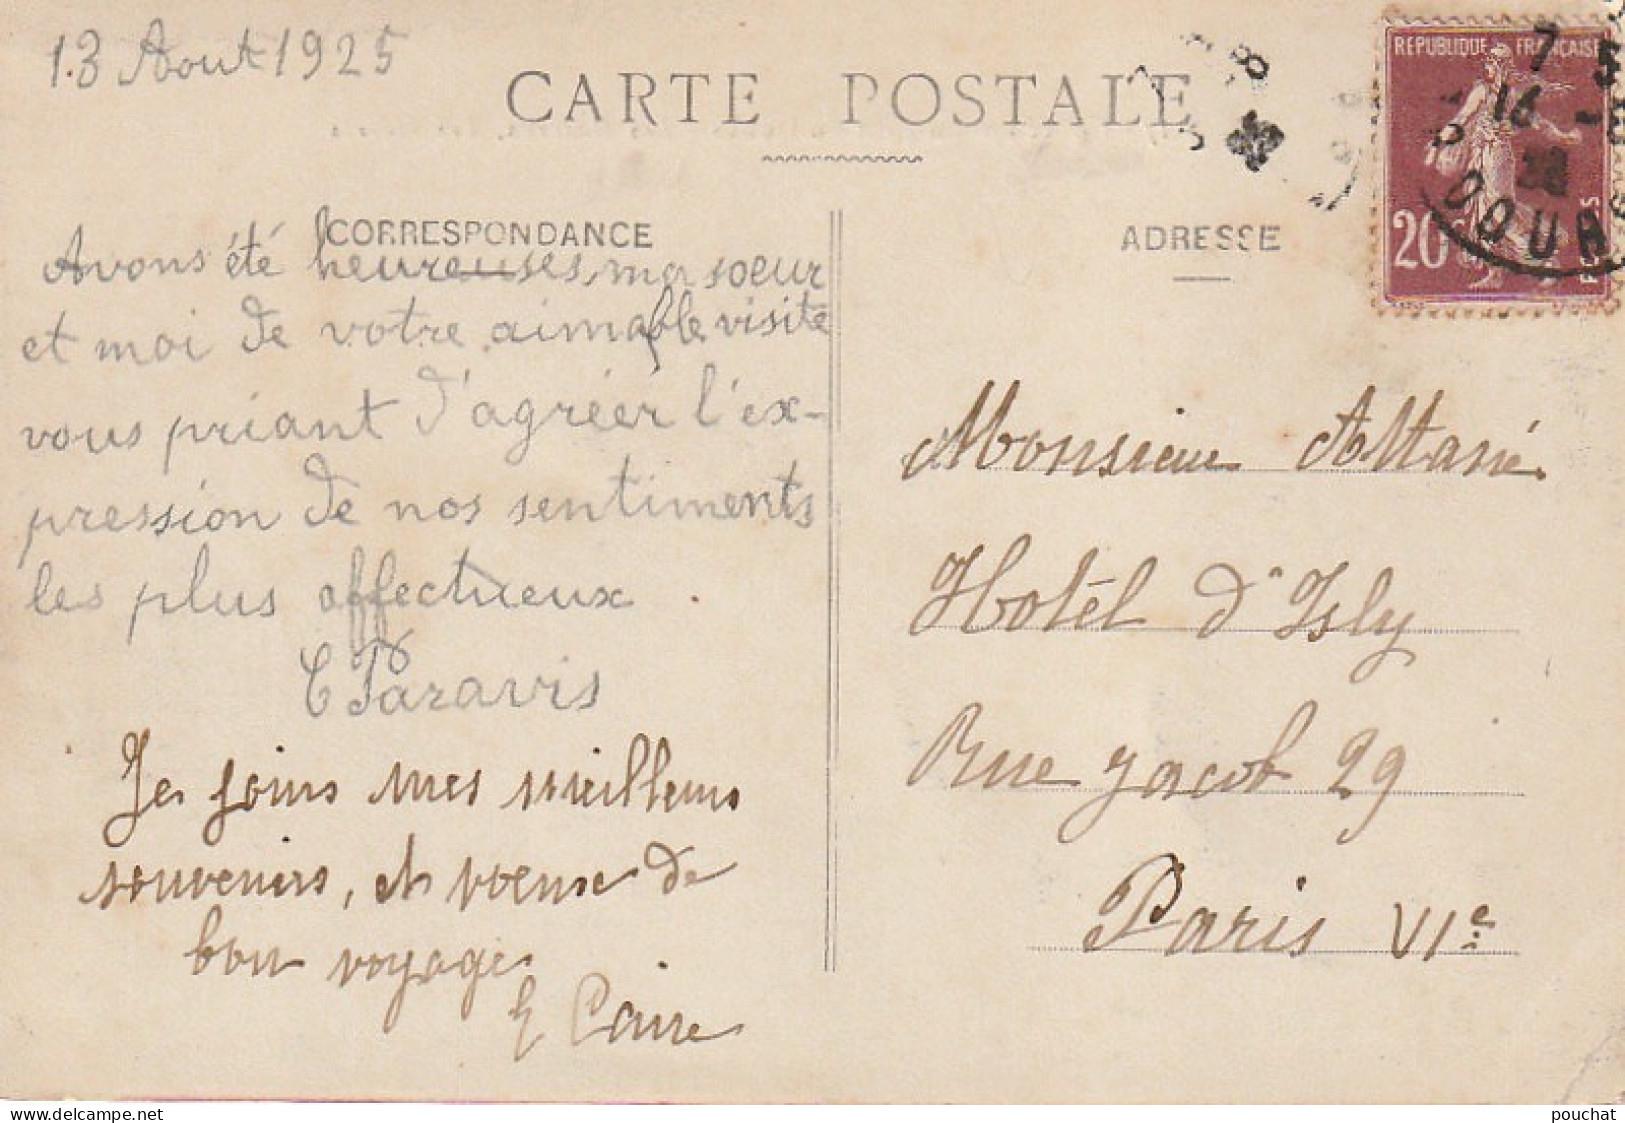 13 Aout 1925
CARTE POSTALE
REPUBLIQUE FRANÇAISE
7
16
20c
DOUA
CORRESPONDANCE
ADRESSE
Avons été heureuses, ma soeur
et moi de votre aimable visite
vous priant d'agréer l'ex-
pression de nos sentiments
les plus affectueux.
Paravis
Je joins mes meilleurs
souvenirs, et voeux de
bon voyage
Monsieur
Hotel d'Isly
Rue Jacob 29
Paris VIe
www.delcampe.net
pouchat